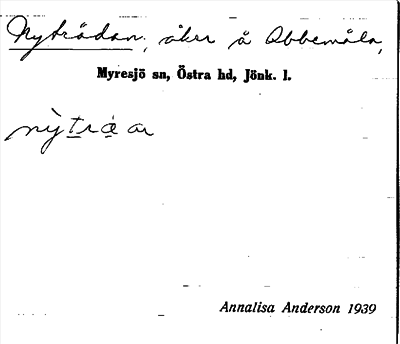 Nyträdan, åker å Abbemåla,
Myresjö sn, Östra hd, Jönk. l.
nỳtrá̤ a
Annalisa Anderson 1939